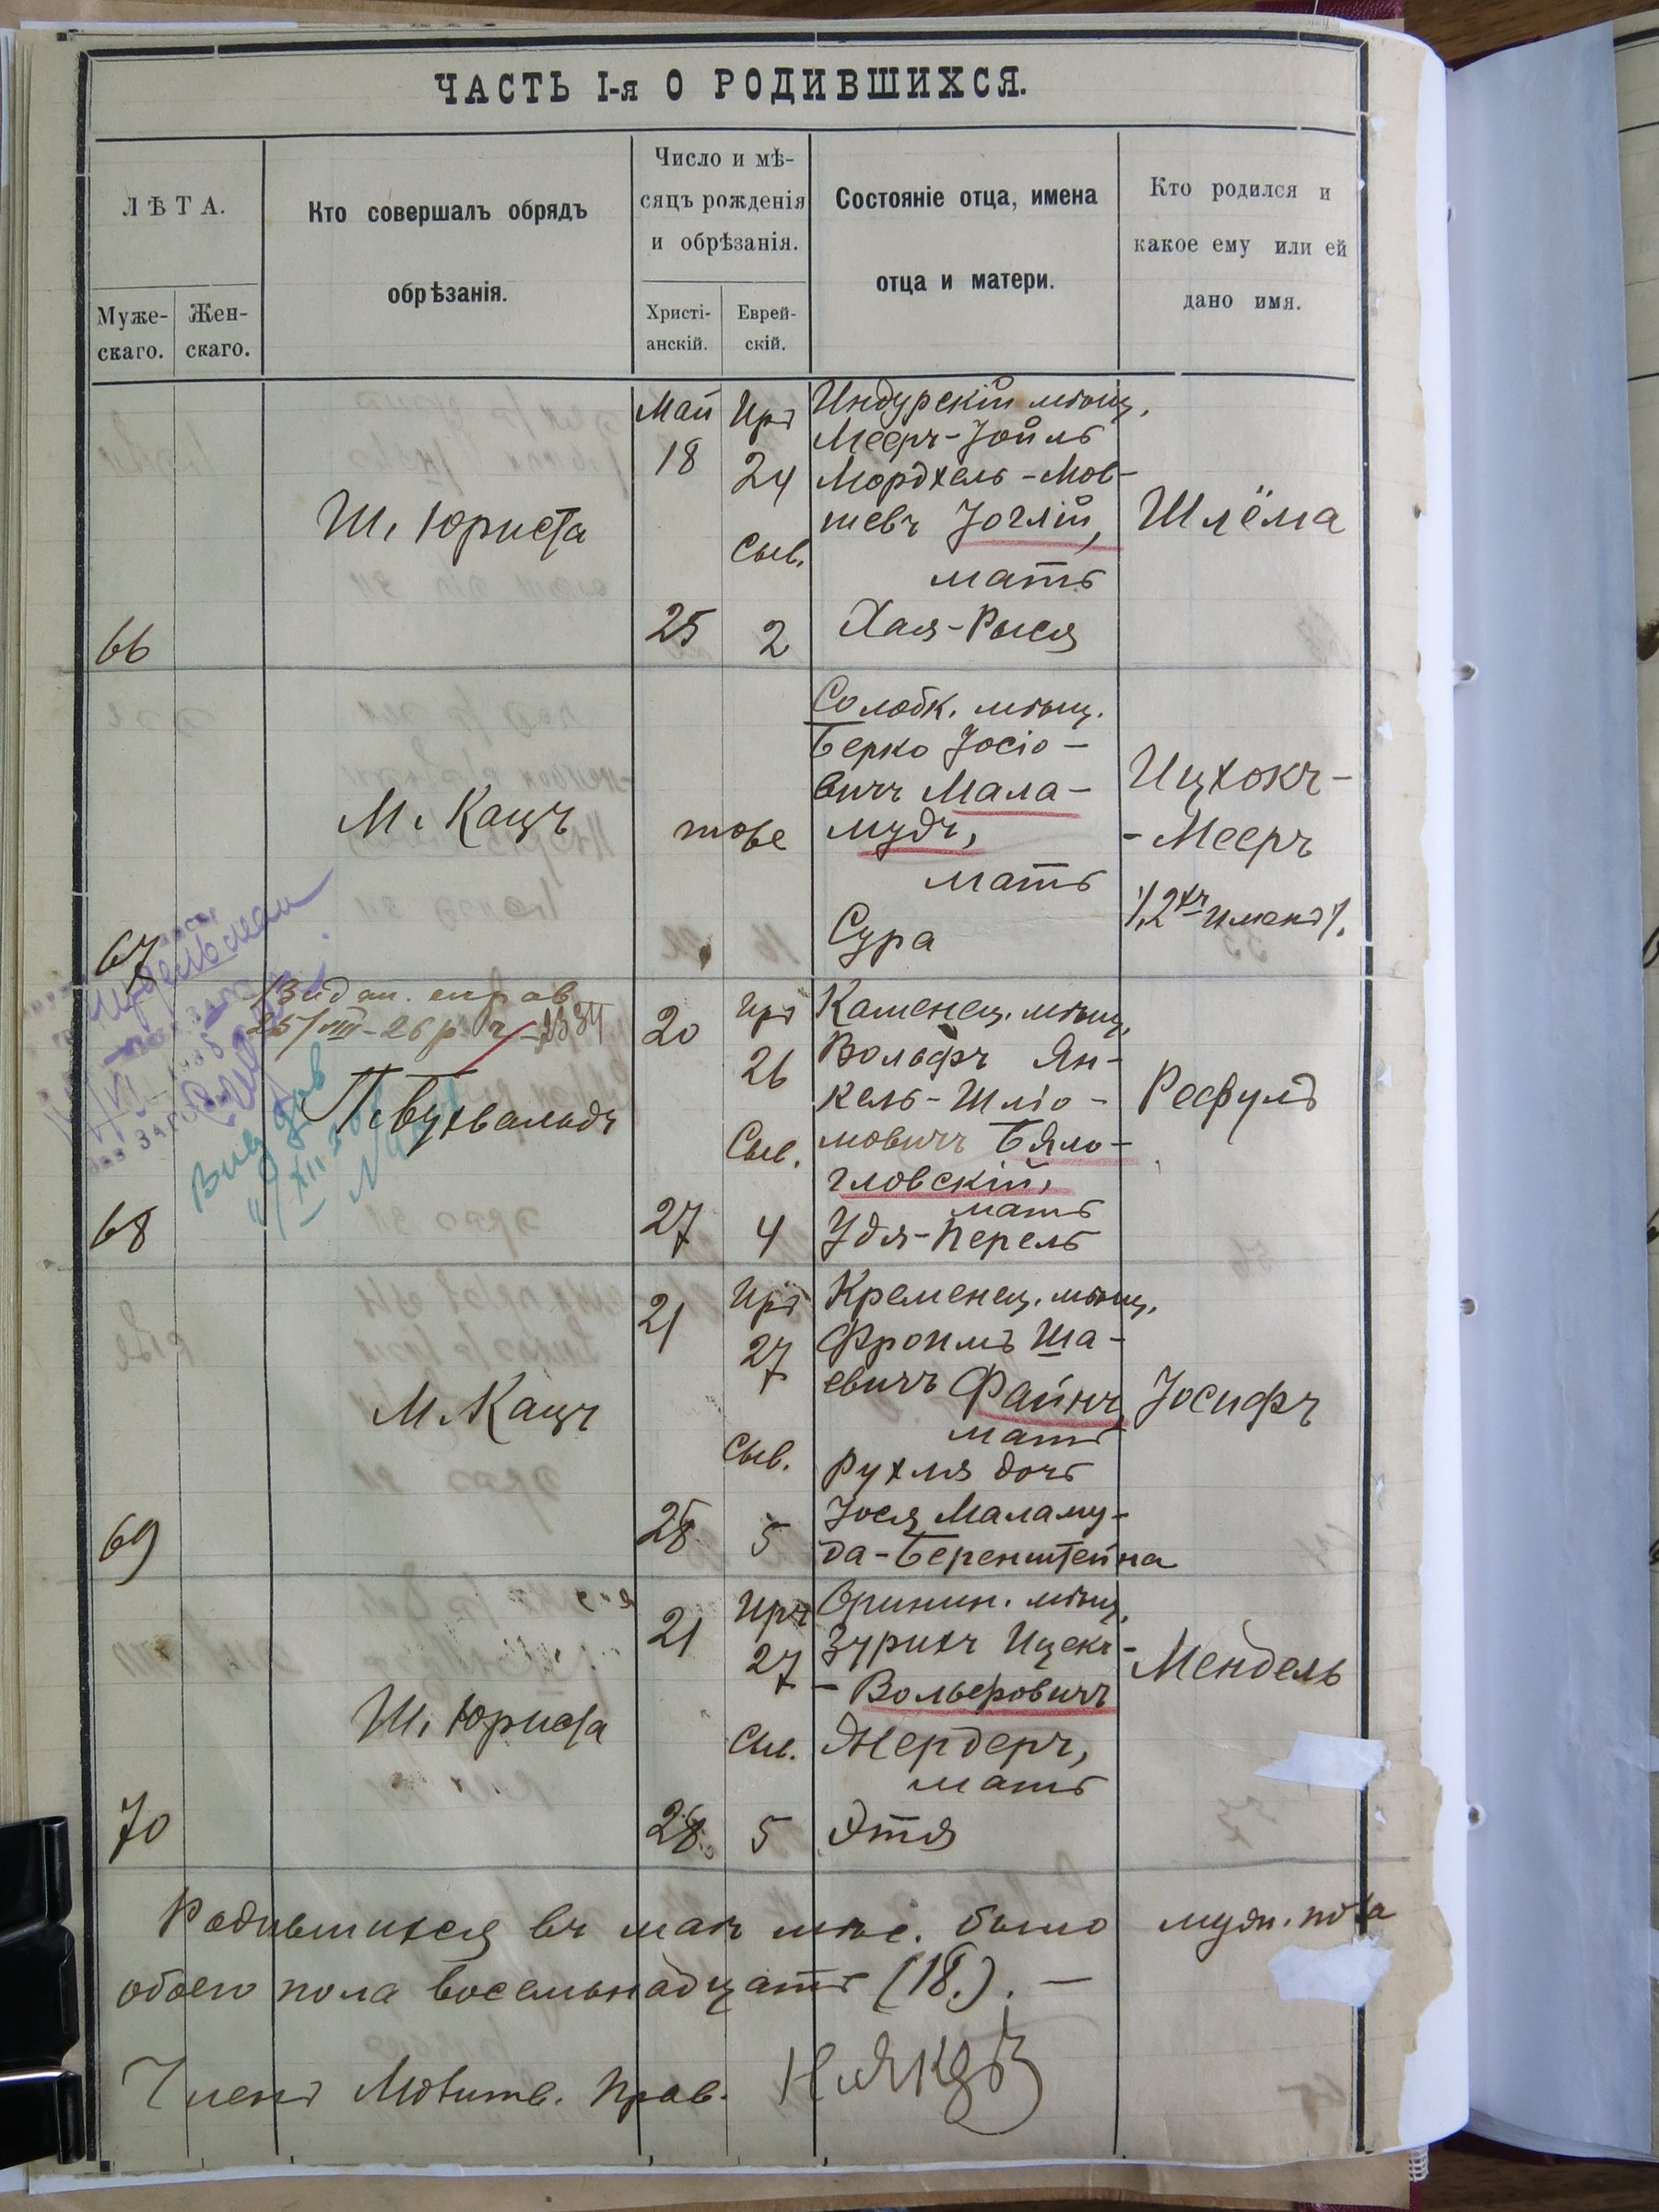 ЧАСТЬ I-я О РОДИВШИХСЯ.
ЛѢТА.
Муже-
скаго.
Жен-
скаго.
Кто совершалъ обрядъ
обрѣзанія.
Число и мѣ-
сяцъ рожденія
и обрѣзанія.
Христі-
анскій.
Еврей-
скій.
Состояніе отца, имена
отца и матери.
Кто родился и
какое ему или ей
дано имя.
66
Ш. Юриста
Май
18
25
Иръ
24
Сив.
2
Индурскій мѣщ.
Мееръ-Іойль
Мордхель-Мов-
шевъ Іоглій,
мать
Хая-Рыся
Шлёма
67
М. Кацъ
тоже
Солобк. мѣщ.
Берко Іосіо-
вичъ Мала-
мудъ,
мать
Сура
Ицхокъ-
-Мееръ
/2хъ именъ/.
68
25/VIII-26 р.
П. Бухвальдъ
20
27
Иръ
26
Сив.
4
Каменец. мѣщ.
Вольфъ Ян-
кель-Шліо-
мовичъ Бяло-
гловскій,
мать
Удя-Перель
Рефулъ
69
М. Кацъ
21
28
Иръ
27
Сив.
5
Кременец. мѣщ.
Фроимъ Ша-
евичъ Файнъ,
мать
Рухля дочь
Іося Маламу-
да-Беренштейна
Іосифъ
70
Ш. Юриста
21
28
Иръ
27
Сив.
5
Оринин. мѣщ.
Зурихъ Ицекъ-
-Вольфовичъ
Жердеръ,
мать
Этя
Мендель
Родившихся въ маѣ мѣс. было муж. пола
обоего пола восемьнадцать (18.). —
Членъ Молитв. Прав.